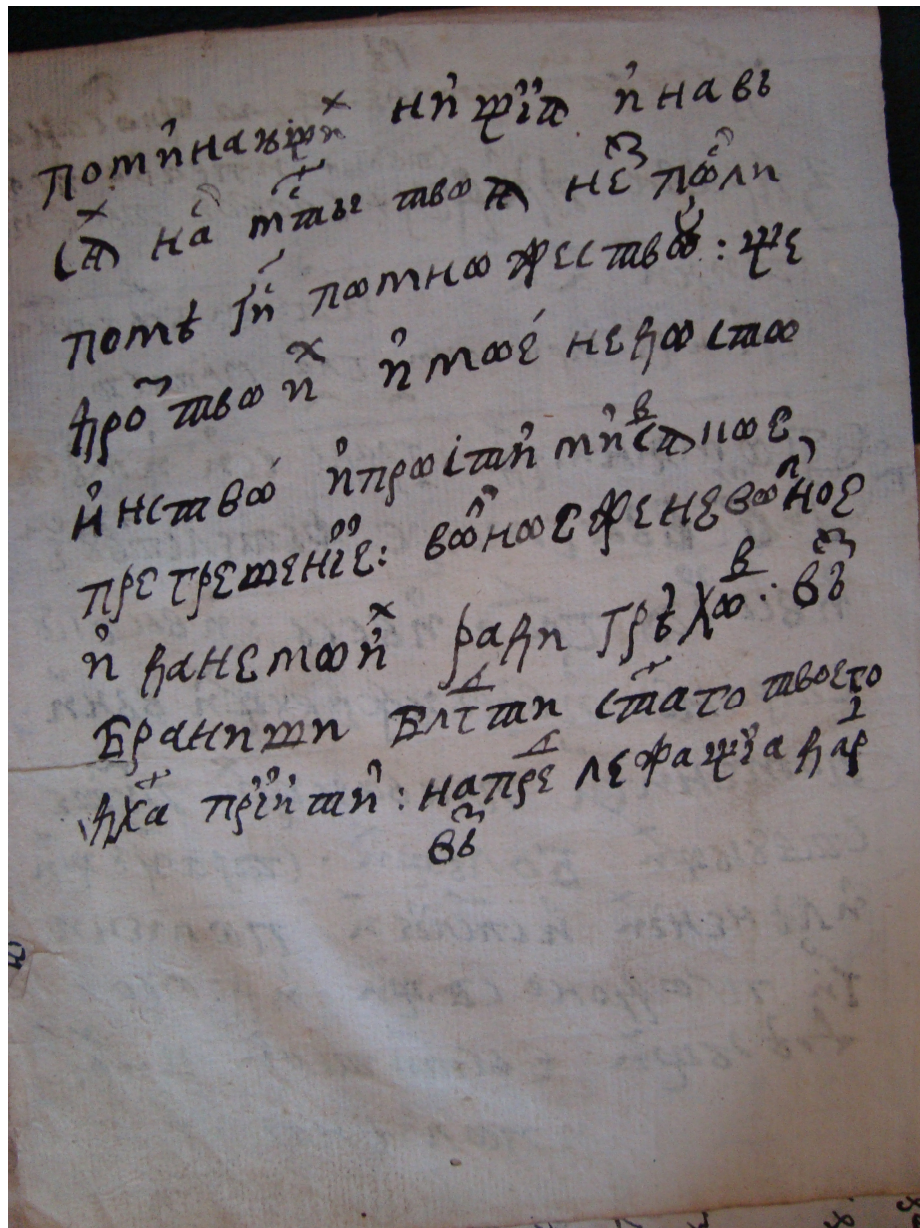 поминающиⷯ ни́щїѧ и҆ на въ
сѧⷯ на́ мⷭ҇ты твоѧ не́ поⷭ҇ли
помѣ гⷭ҇и помножествꙋ: ще
дроⷮ твоиⷯ и҆ мое́ недосто
и҆нство и҆ прости́ ми всѧⷦ ное
прегрешенїе: воⷧ҇ное же невоⷧ҇ное
и҆ да не моиⷯ ради грѣхоⷡ: въз
браниши блгⷣти ст҃аго твоего
дх҃а прїити: на преⷣлежащїа даⷬ
въ